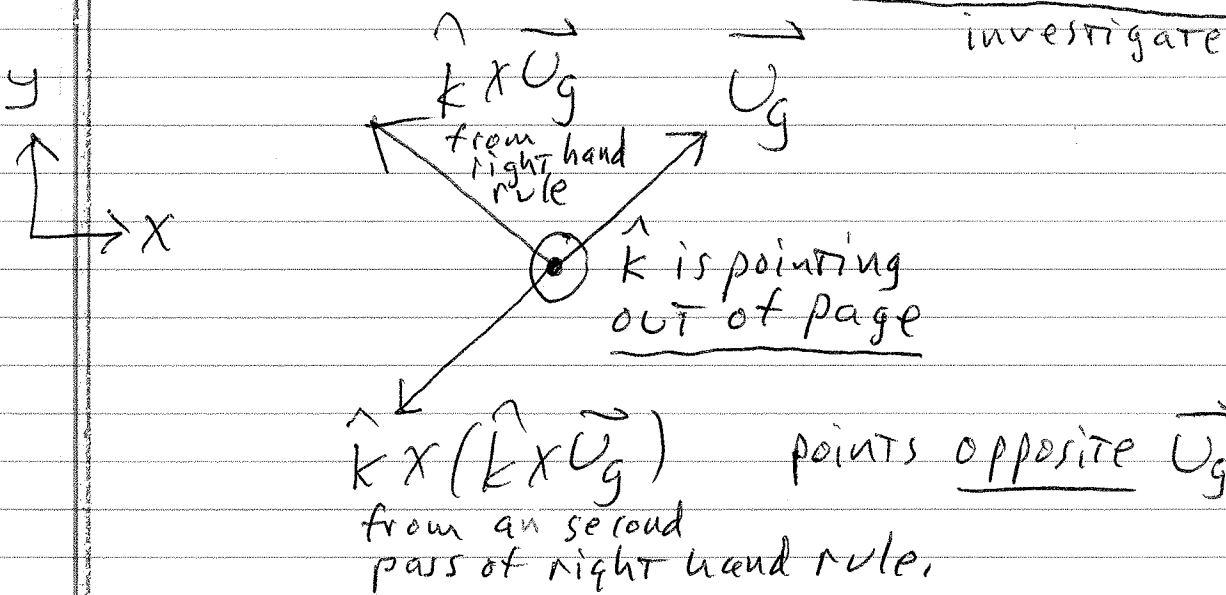 investigate
y
k̂ x U⃗g
U⃗g
from
right hand
rule
x
k̂ is pointing
out of page
k̂ x (k̂ x U⃗g) points opposite U⃗g
from an second
pass of right hand rule.